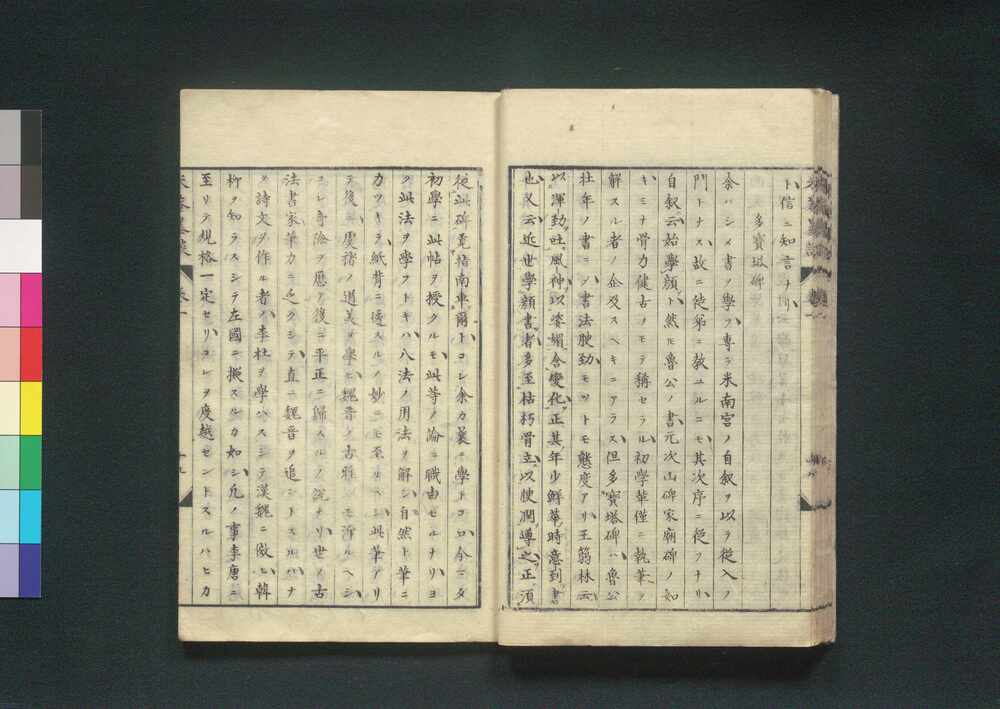 ト信ニ知言ナリ
多寳塔碑
余ハシメ書ヲ學フ專ラ米南宮ノ自叙ヲ以ラ從入ノ
門トナス故ニ徒弟ニ教ユルニモ其次序ニ從フナリ
自叙云始學顔ト然ルニ魯公ノ書元次山碑家廟碑ノ如
キミナ骨力健古ノモテ稱セラル初學華僅ニ執筆ヲ
解スル者ノ企及スヘキニアラス但多寳塔碑ハ魯公
壮年ノ書ニシ書法腴勁モツトモ態度アリ王篛林云
以渾勁吐風神以姿媚含變化正其年少鮮華時意到書
也又云近世學顔書者多至枯朽骨立以腴潤導之正須
從此碑覓指南車爾トコレ余カ曩ニ學トコロ今ニタ
初學ニ此帖ヲ授クルモ此等ノ論ニ職由セルナリヨ
ク此法ヲ學フトキハ八法ノ用法ヲ解シ自然ト筆ニ
カツキテ紙背ニ透スルノ妙ニモ至ルヘシ此筆アリ
テ後ニ虞褚ノ遒美ヲ學ヒ魏晉ノ古雅ニモ泝ルヘシ
コレ奇險ヲ歴テ復ニ平正ニ歸スルノ説ナリ世ノ古
法書家筆力ニ乏クシテ直ニ魏晉ヲ追ントスルハナ
ヲ詩文ヲ作ル者ハ李杜ヲ學ハスシテ漢魏ニ倣ヒ韓
柳ヲ知ラスシテ左國ニ擬スルカ如シ凡ノ事李唐ニ
至リテ規格一定セリコレヲ度越セントスルハヒカ